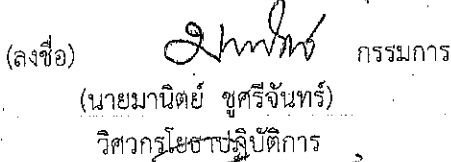 (ลงชื่อ) กรรมการ
(นายมานิตย์ ชูศรีจันทร์)
วิศวกรโยธาปฏิบัติการ